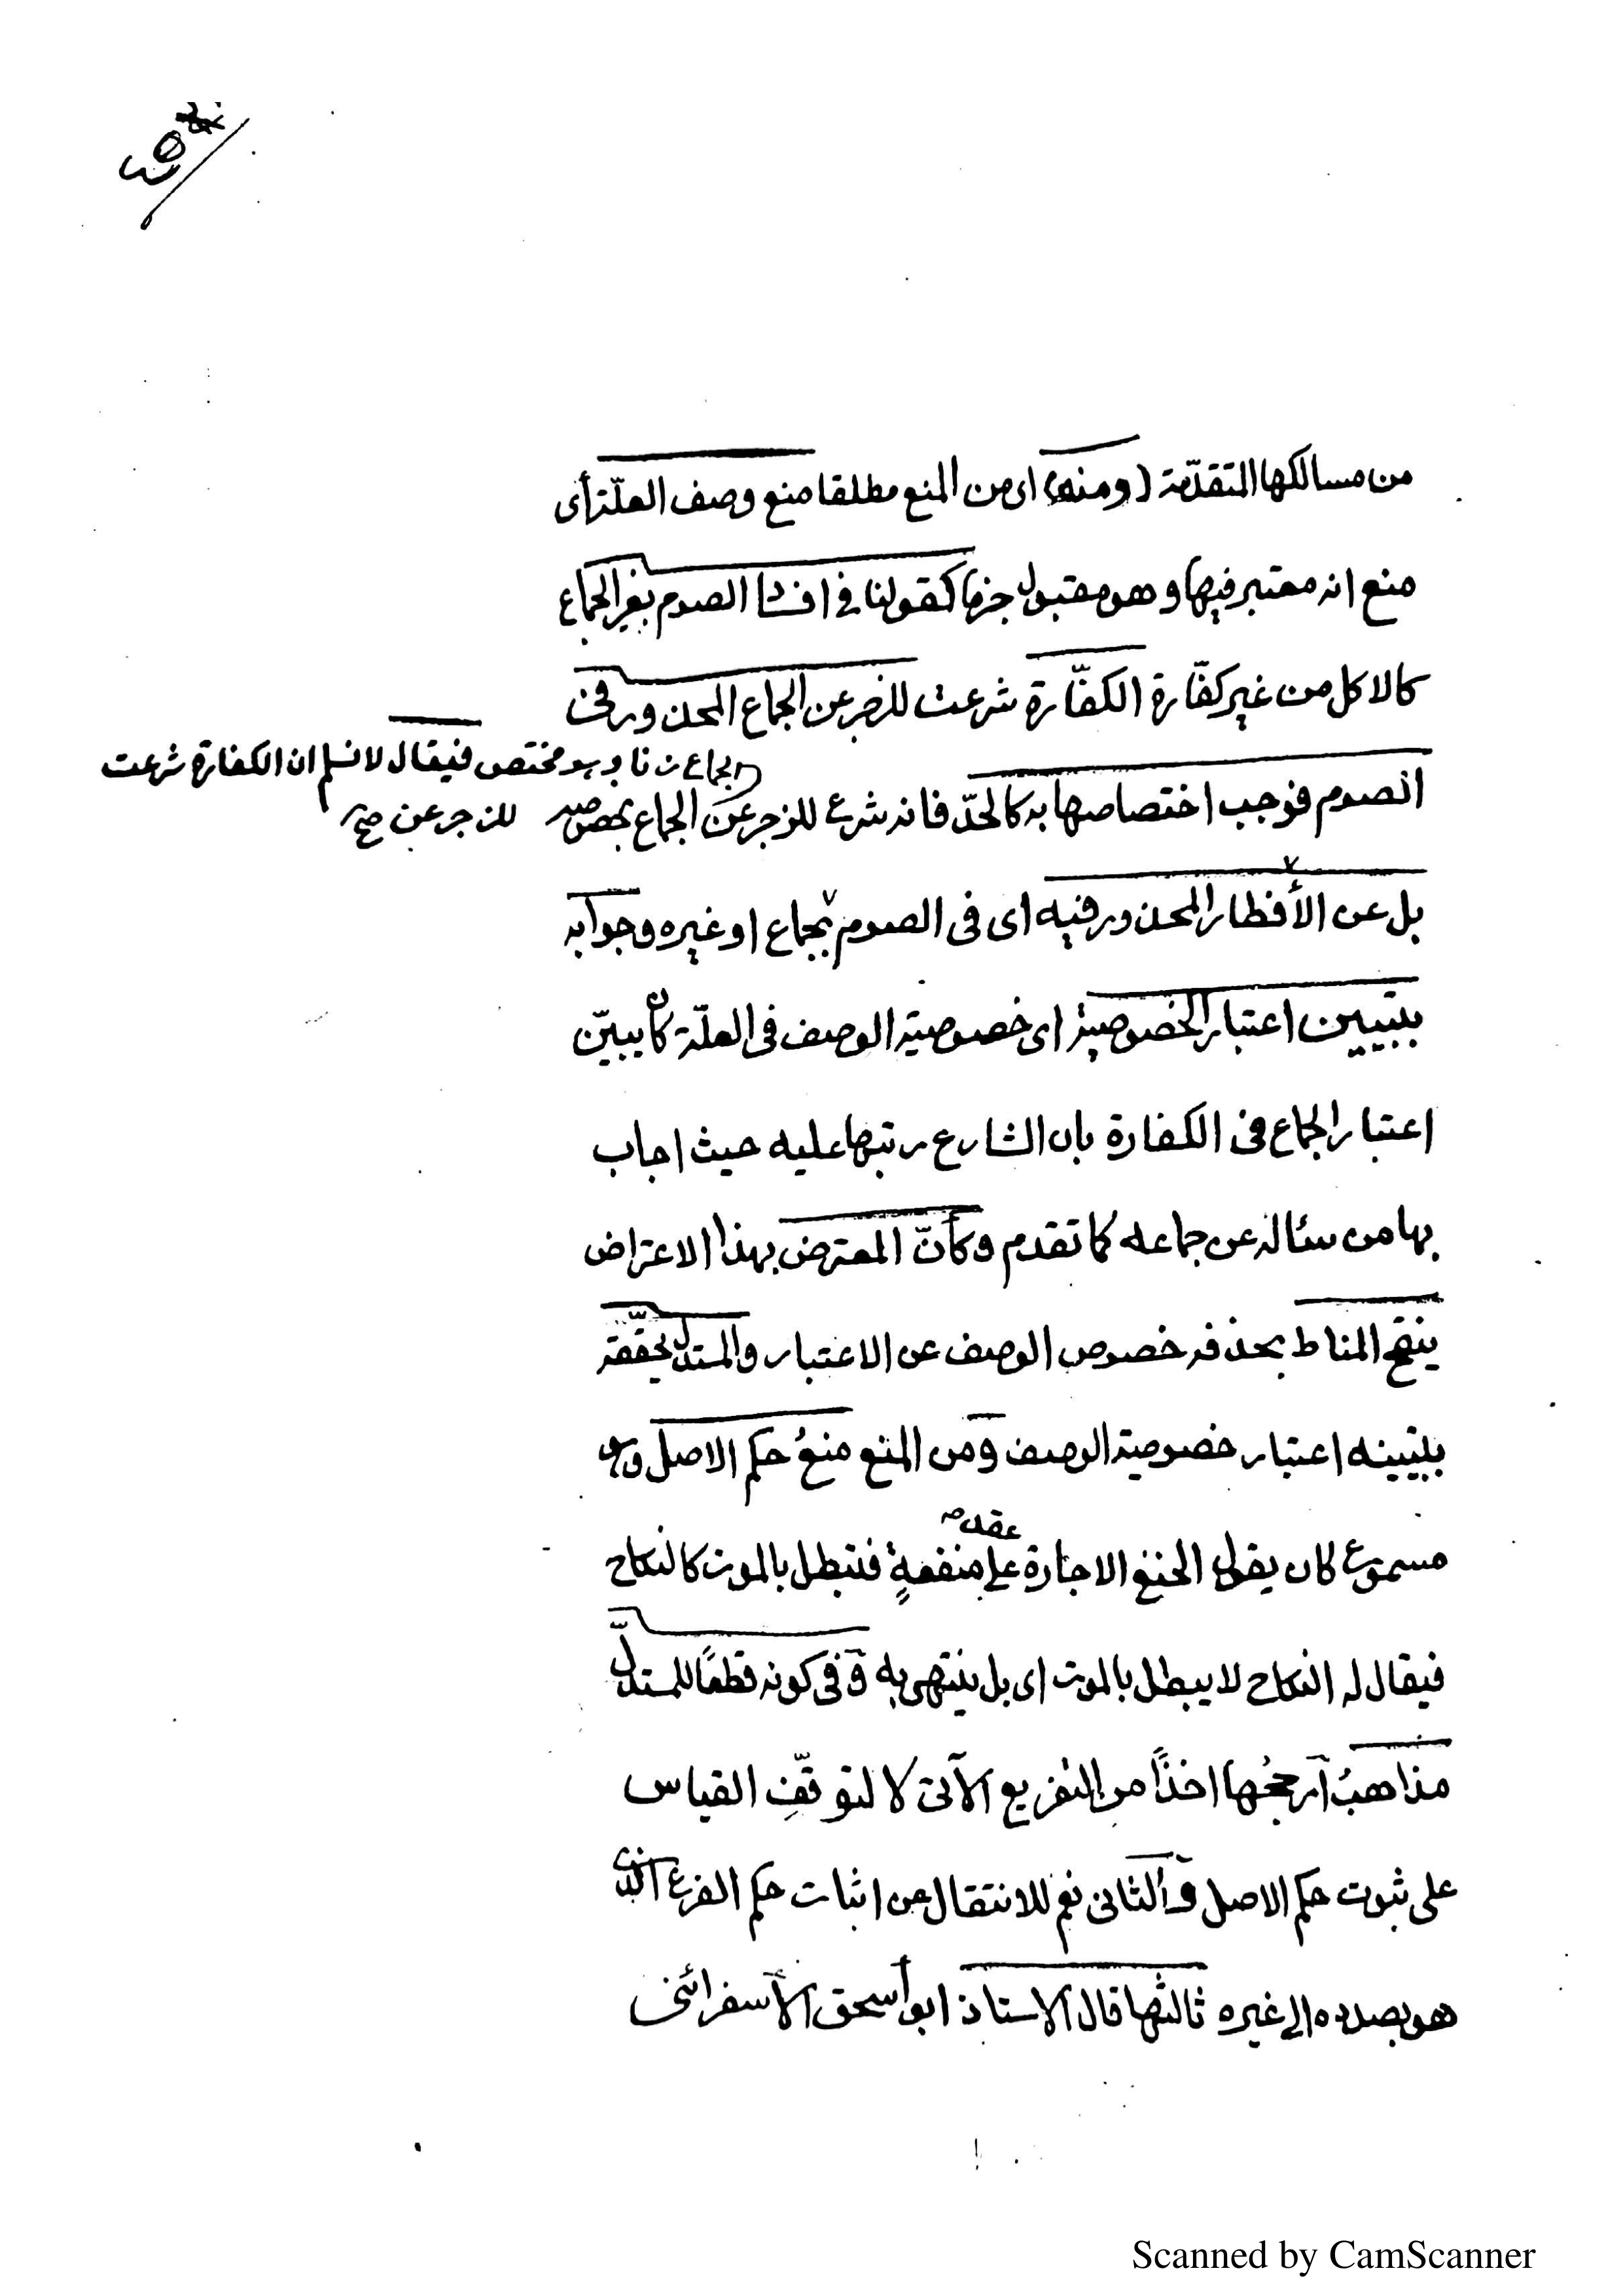 من مسالكها المتقدّمة (ومنه) اى من المنع مطلقا منع وصف العلّة أى
منع انه معتبر فيها وهو مقبول جزما كقولنا فى افساد الصوم بغير الجماع
كالاكل من غير كفّارة الكفّارة شرعت للزجر عن الجماع المحذور فى
الصوم فوجب اختصاصها به كالحدّ فانه شرع للزجر عن الجماع
الجماع زنا وهو مختص فيقال لا نسلم ان الكفارة شرعت
للزجر عن صح
بل عن الأفطار المحذور فيه اى فى الصوم بجماع او غيره وجوابه
بتبيين اعتبار الخصوصية اى خصوصية الوصف فى العلّة كأن يبيّن
اعتبار الجماع فى الكفارة بان الشارع رتبها عليه حيث اجاب
بها من سئاله عن جماعه كما تقدم وكأنّ المعترض بهذا الاعتراض
ينقح المناط بحذفه خصوص الوصف عن الاعتبار والمستدل يحقّقه
بتبيينه اعتبار خصوصية الوصف ومن المنع منعُ حكم الاصل وهو
مسموع كان يقول الحنفى الاجارة عقد على منفعةٍ فتبطل بالموت كالنكاح
فيقال له النكاح لا يبطل بالموت اى بل ينتهى به وفى كونه قطعًا للمستدلّ
مذاهبُ أرجحُها اخذًا من التفريع الآتى لا لتوقّفِ القياس
على ثبوت حكم الاصل والثانى نعم للانتقال عن اثبات حكم الفرع الذى
هو بصدده الى غيره ثالثها قال الاستاذ ابو أسحق الأسفرائنى
Scanned by CamScanner